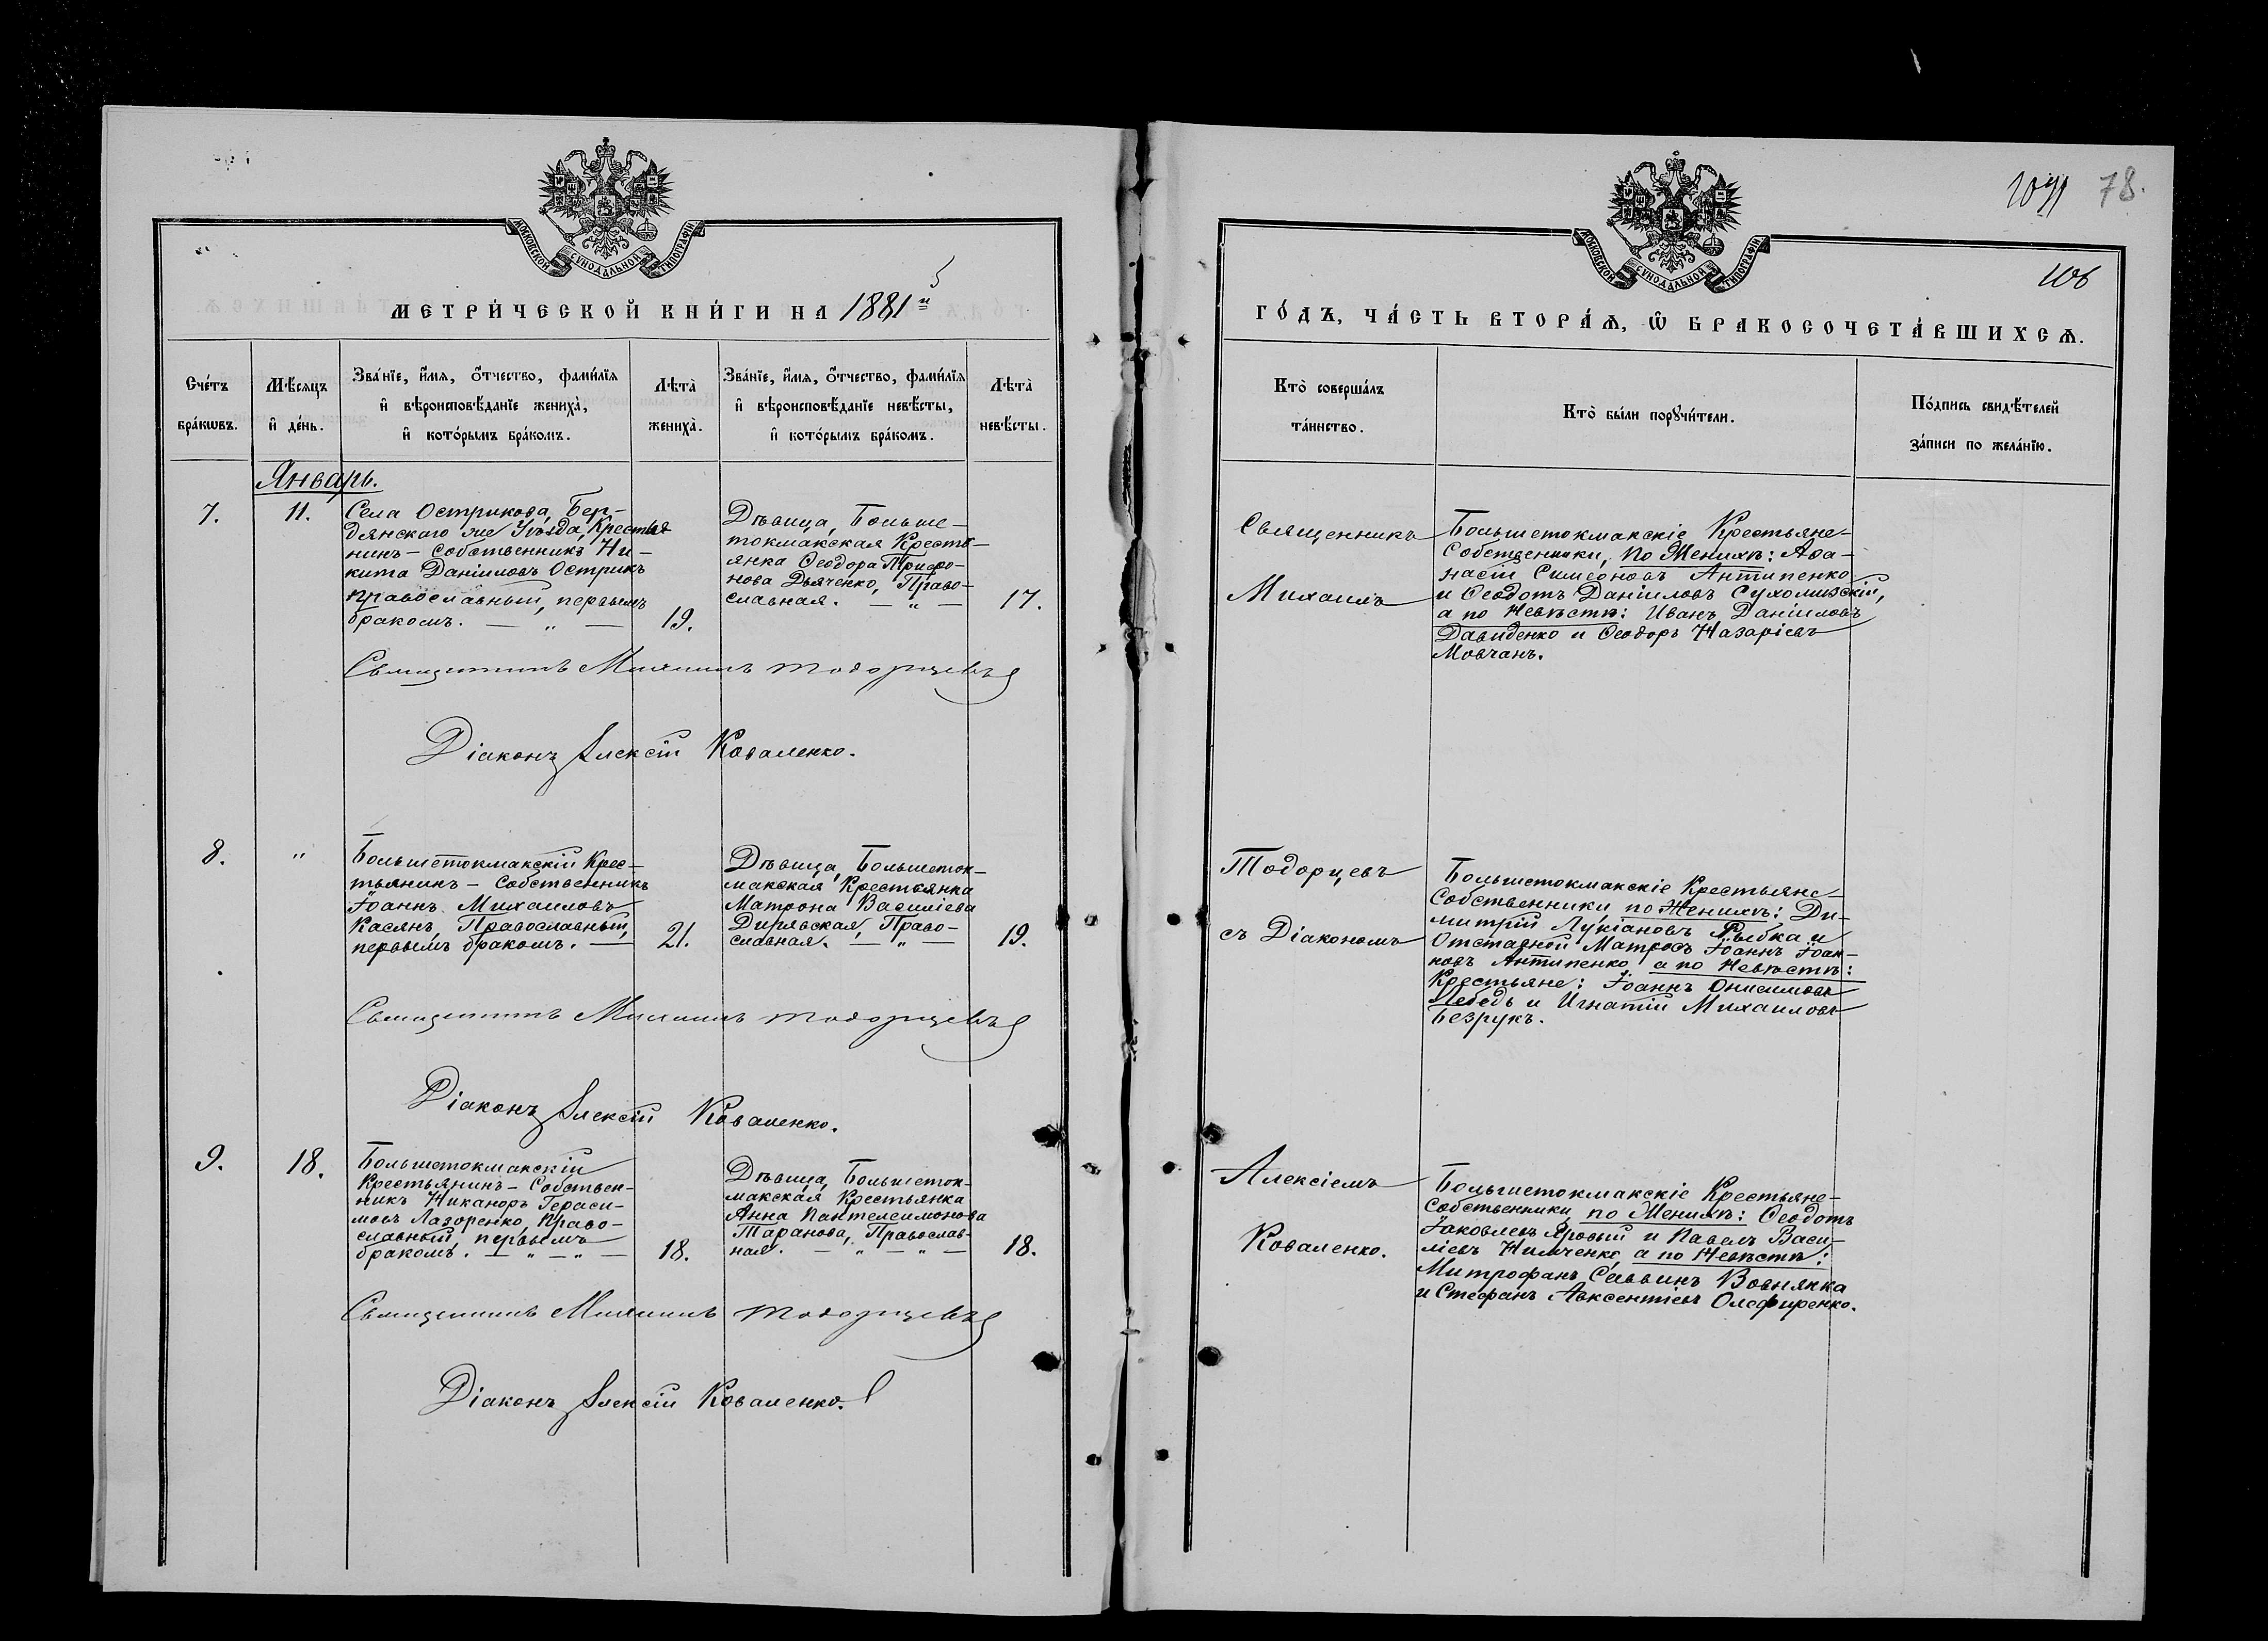 МОСКОВСКОЙ СѴНОДАЛЬНОЙ ТИПОГРАФІИ
МЕТРИ́ЧЕСКОЙ КНИ́ГИ НА 1881й
Сче́тъ бра́кѡвъ.
Мѣ́сяцъ и҆ де́нь.
Зва́нїе, и҆́мя, ѻ҆́тчество, фами́лїя
и҆ вѣроисповѣ́данїе жениха̀,
и҆ кото́рымъ бра́комъ.
Лѣта̀ жениха̀.
Зва́нїе, и҆́мя, ѻ҆́тчество, фами́лїя
и҆ вѣроисповѣ́данїе невѣ́сты,
и҆ кото́рымъ бра́комъ.
Лѣта̀ невѣ́сты.
Январь.
7.
11.
Села Острикова, Бер-
дянскаго же Уѣзда, Крестья-
нинъ - Собственникъ Ни-
кита Даніиловъ Острикъ
православный, первымъ
бракомъ. — „ —
19.
Дѣвица, Больше-
токмакская Кресть-
янка Ѳеодора Трифо-
нова Дьяченко, Право-
славная. — „ —
17.
Священникъ Михаилъ Тодорцевъ
Діаконъ Алексій Коваленко.
8.
„
Большетокмакскій Крес-
тьянинъ - Собственникъ
Іоаннъ Михаиловъ
Касянъ, Православный,
первымъ бракомъ. —
21.
Дѣвица, Большеток-
макская Крестьянка
Матрона Василіева
Дирявская, Право-
славная. — „ —
19.
Священникъ Михаилъ Тодорцевъ
Діаконъ Алексій Коваленко.
9.
18.
Большетокмакскій
Крестьянинъ - Собствен-
никъ Никаноръ Гераси-
мовъ Лазоренко, Право-
славный, первымъ
бракомъ. — „ — „ —
18.
Дѣвица, Большеток-
макская Крестьянка
Анна Пантелеимонова
Таранова, Православ-
ная. — „ — „ —
18.
Священникъ Михаилъ Тодорцевъ
Діаконъ Алексій Коваленко.
78.
106
МОСКОВСКОЙ СѴНОДАЛЬНОЙ ТИПОГРАФІИ
ГО́ДЪ, ЧА́СТЬ ВТОРА́Ѧ, Ѽ БРАКОСОЧЕТА́ВШИХСѦ.
Кто̀ соверша́лъ
та́инство.
Кто̀ бы́ли порꙋчи́тели.
По́дпись свидѣ́телей
за́писи по жела́нїю.
Священникъ
Михаилъ
Большетокмакскіе Крестьяне-
Собственники, по Женихѣ: Аѳа-
насій Симеоновъ Антипенко
и Ѳеодотъ Даніиловъ Сухомизскій,
а по Невѣстѣ: Иванъ Даніиловъ
Давиденко и Ѳеодоръ Назаріевъ
Мовчанъ.
Тодорцевъ
съ Діакономъ
Большетокмакскіе Крестьяне-
Собственники по Женихѣ: Ди-
митрій Лукіановъ Рыбка и
Отставной Матросъ Іоаннъ Іоан-
новъ Антипенко, а по Невѣстѣ:
Крестьяне: Іоаннъ Онисимовъ
Лебедь и Игнатій Михаиловъ
Безрукъ.
Алексіемъ
Коваленко.
Большетокмакскіе Крестьяне-
Собственники, по Женихѣ: Ѳеодотъ
Іаковлевъ Яровый и Павелъ Васи-
ліевъ Нимченко, а по Невѣстѣ:
Митрофанъ Саввинъ Вовнянка
и Стефанъ Авксентіевъ Олефиренко.